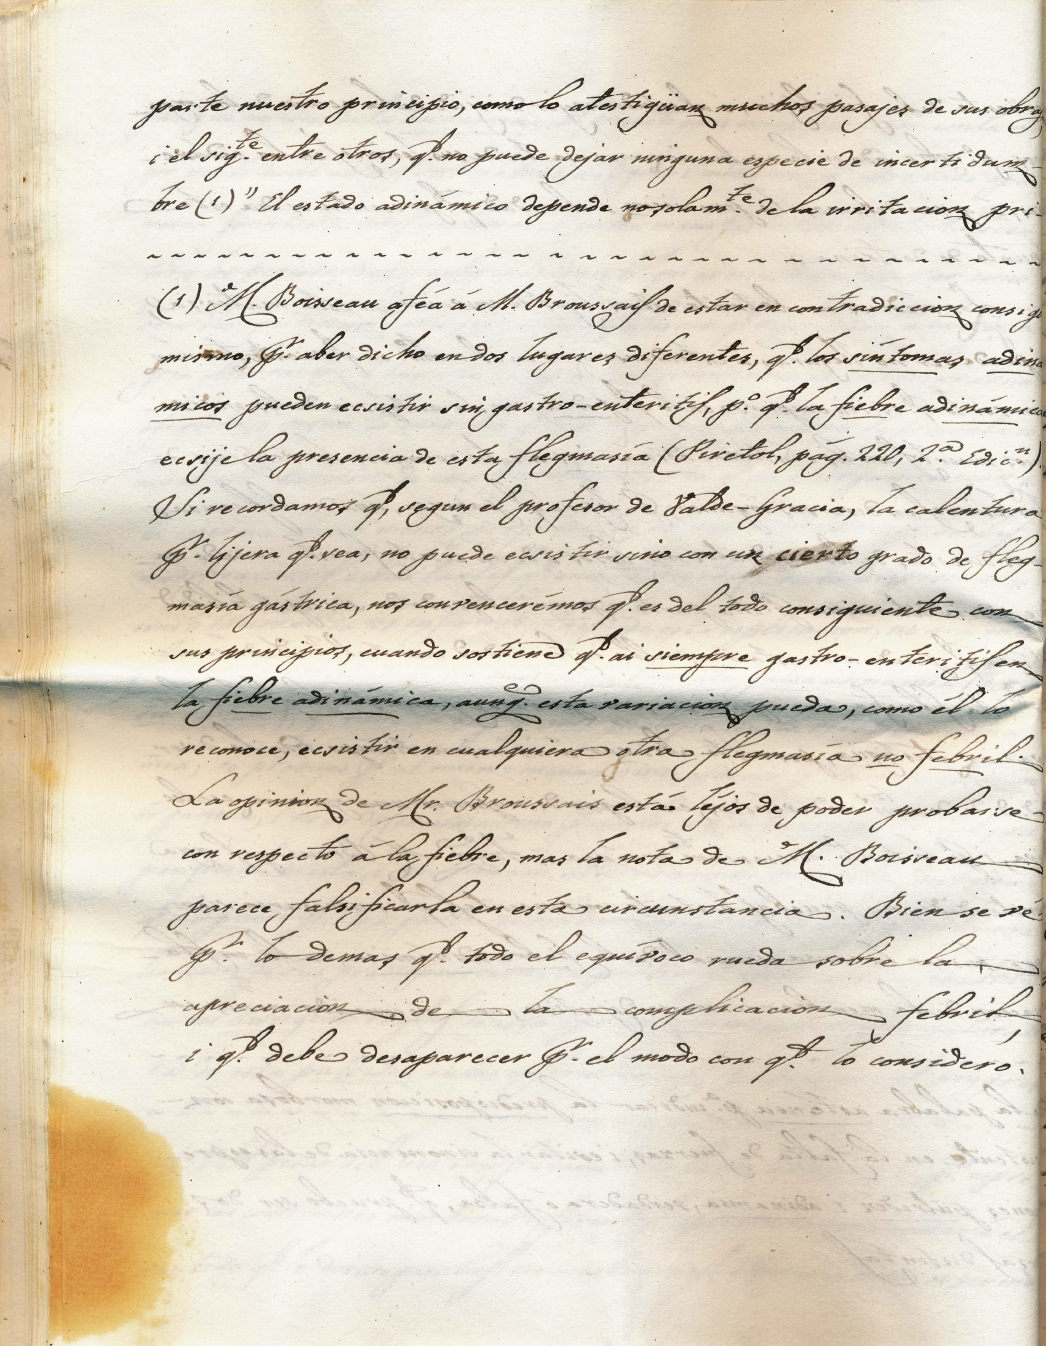 parte nuestro principio, como lo atestigüan muchos pasajes de sus obras
i el sigte. entre otros, q.e no puede dejar ninguna especie de incertidum-
bre (1)" El estado adinámico depende no solamte. de la irritacion pri-
(1) M. Boisseau aféa á M. Broussais de estar en contradiccion consigo
mismo, pr. aber dicho en dos lugares diferentes, q.e los síntomas adiná
micos pueden ecsistir sin gastro-enteritis, p.o q.e la fiebre adinámica
ecsije la presencia de esta flegmasía (Piretol, pág. 220, 2.a Edic.n)
Si recordamos q.e, segun el profesor de Valde-Gracia, la calentura
pr. lijera q.e sea, no puede ecsistir sino con un cierto grado de fleg-
masía gástrica, nos convencerémos q.e es del todo consiguiente con
sus principios, cuando sostiene q.e ai siempre gastro-enteritis en
la fiebre adinámica, aunq.e esta variacion pueda, como él lo
reconoce, ecsistir en cualquiera otra flegmasía no febril.
La opinion de Mr. Broussais está léjos de poder probarse
con respecto á la fiebre, mas la nota de M. Boisseau
parece falsificarla en esta circunstancia. Bien se vé
pr. lo demas q.e todo el equívoco rueda sobre la
apreciacion de la complicacion febril,
i q.e debe desaparecer pr. el modo con q.e lo considero.